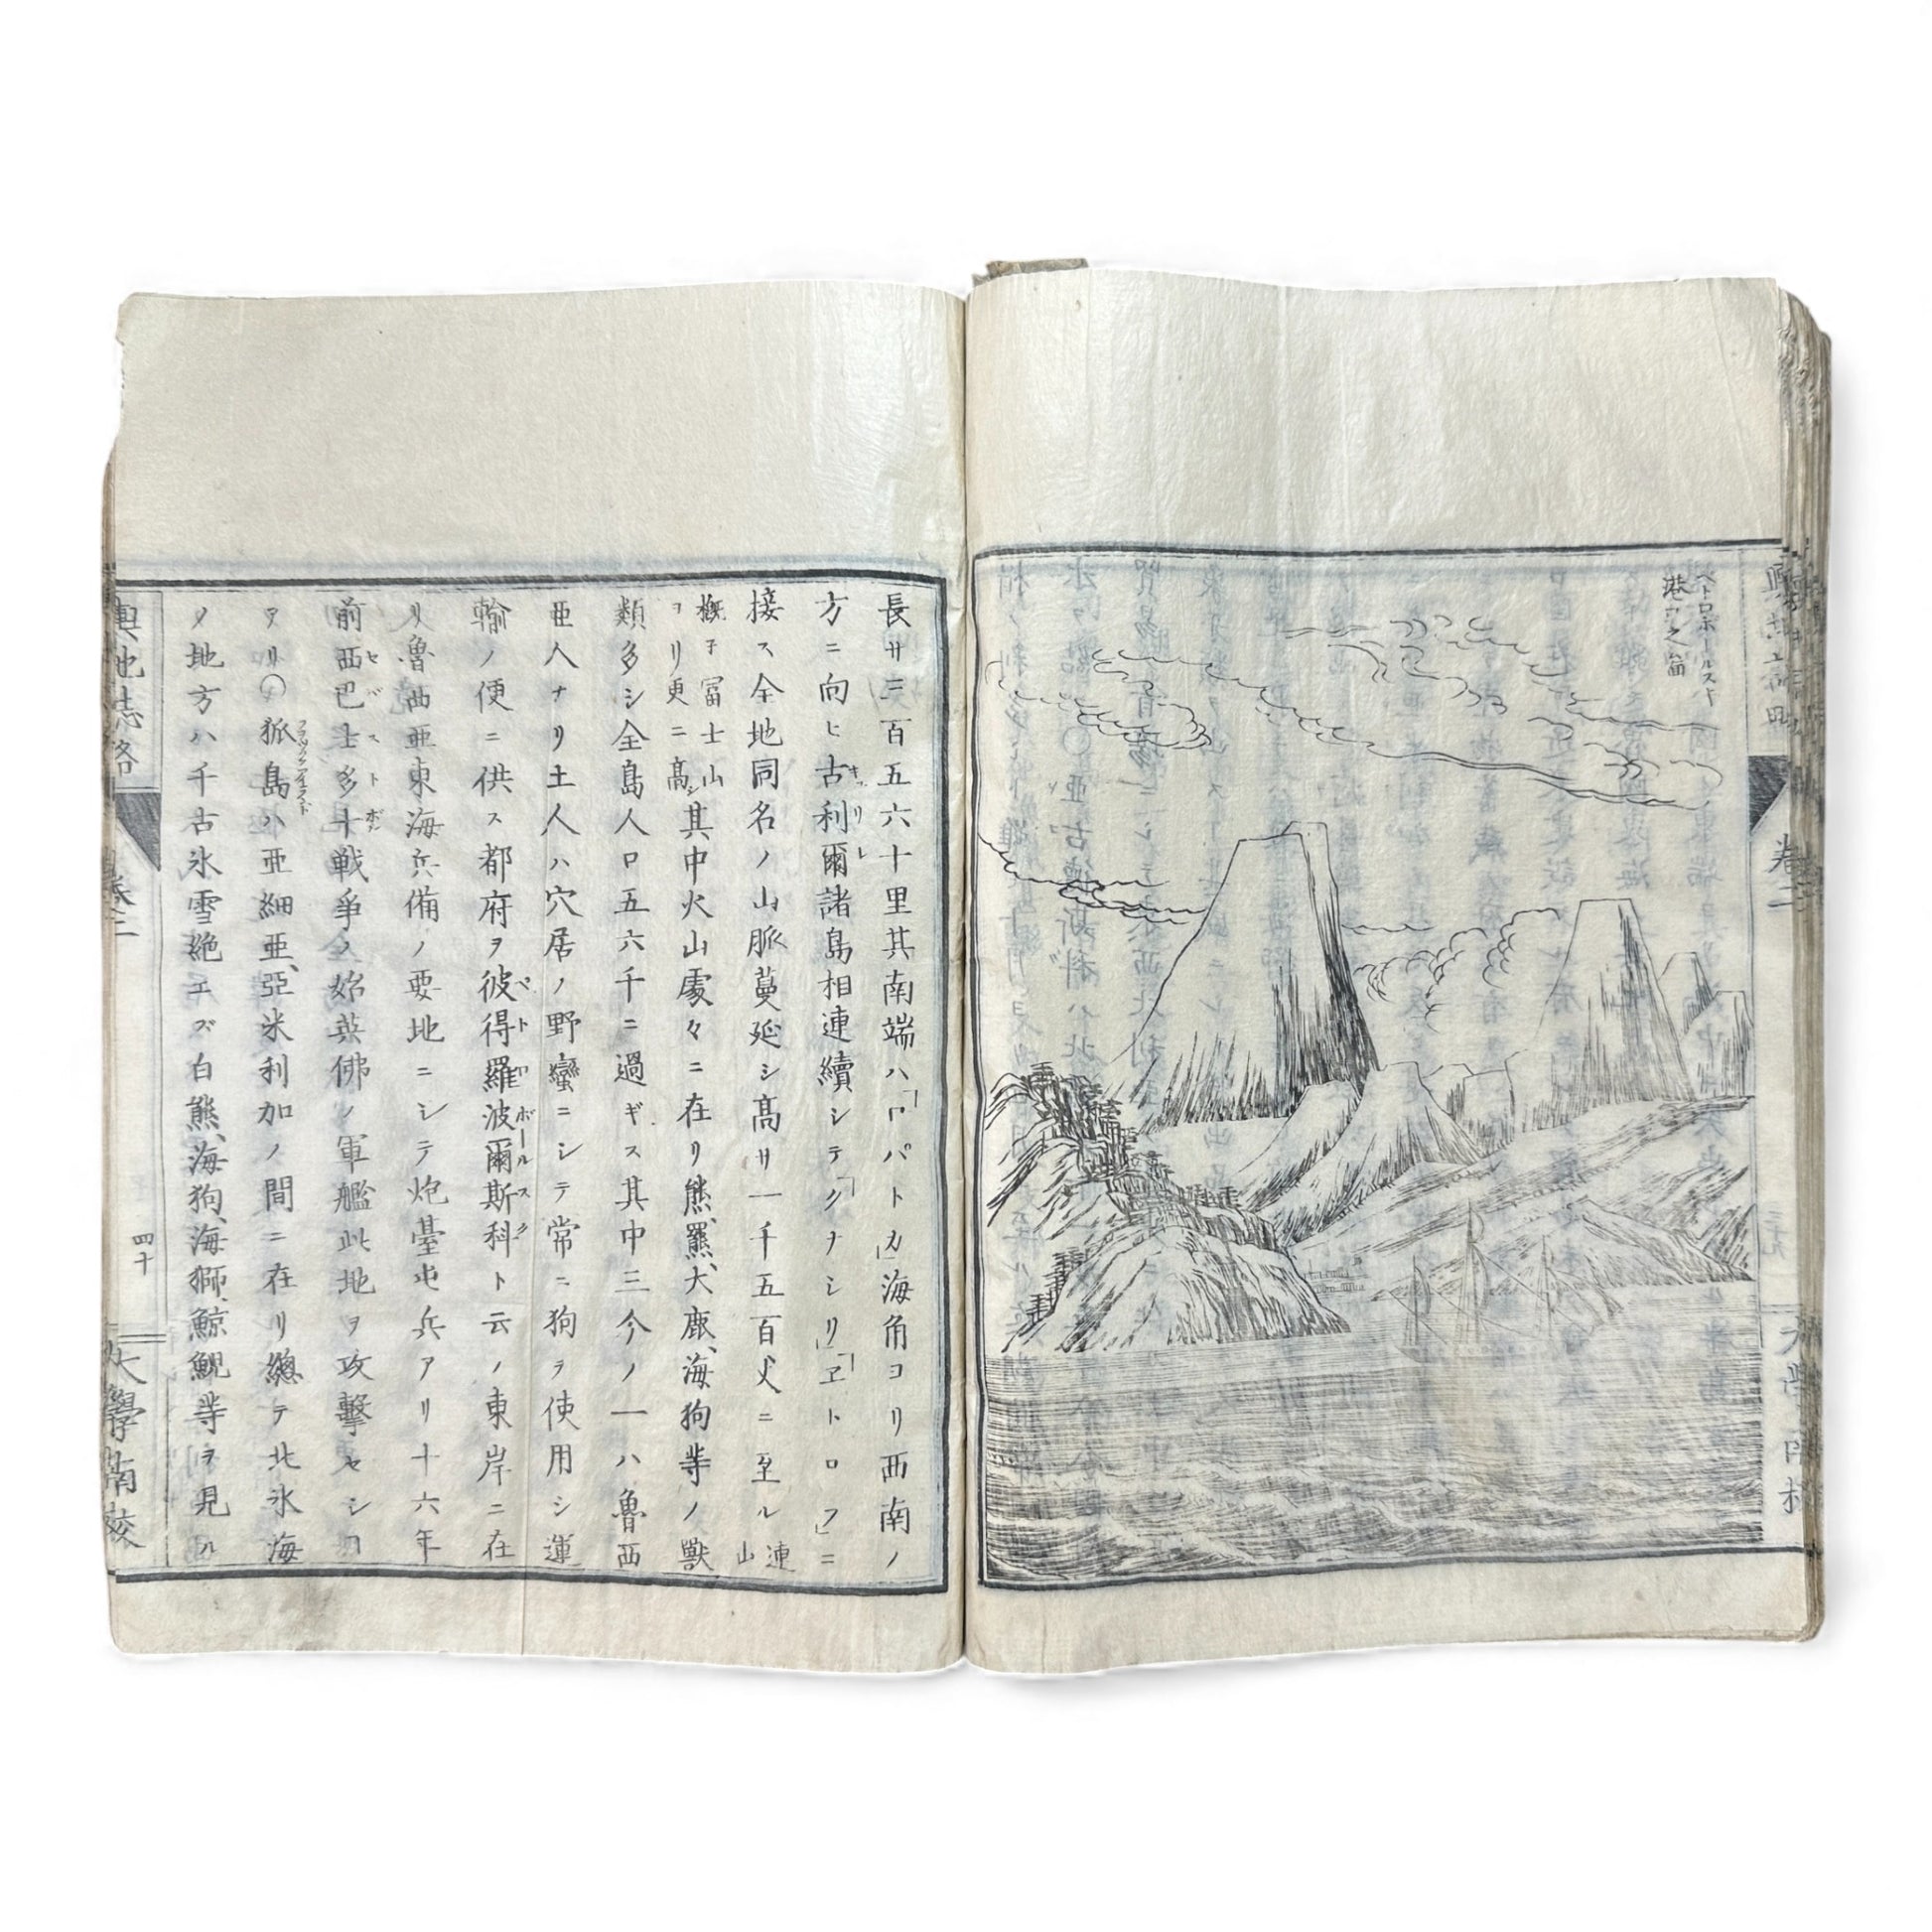 ペトロポールスキ
港口之圖
長サ三百五六十里其南端ハ「ロパトカ」海角ヨリ西南ノ
方ニ向ヒ古利爾諸島相連續シテ「クナシリ」「ヱトロフ」ニ
キュリレ
接ス全地同名ノ山脈蔓延シ髙サ一千五百丈ニ至ル連山
概子冨士山ヨリ更ニ髙シ其中火山處々ニ在リ熊、羆、大鹿、海狗䓁ノ獸
類多シ全島人口五六千ニ過ギス其中三分ノ一ハ魯西
亜人ナリ土人ハ穴居ノ野蠻ニシテ常ニ狗ヲ使用シ運
輸ノ便ニ供ス都府ヲ彼得羅波爾斯科ト云ノ東岸ニ在
ペトロポールスク
リ魯西亜東海兵備ノ要地ニシテ炮臺屯兵アリ十六年
前西巴士多卜戦爭ノ始英佛ノ軍艦此地ヲ攻擊セシヿ
セバストポル
アリ〇狐島ハ亜細亜、亞米利加ノ間ニ在リ總テ北氷海
ノ地方ハ千古氷雪絶エズ白熊、海狗、海獅、鯨鯢䓁ヲ見ル
輿地志略
卷二
四十
大學南校